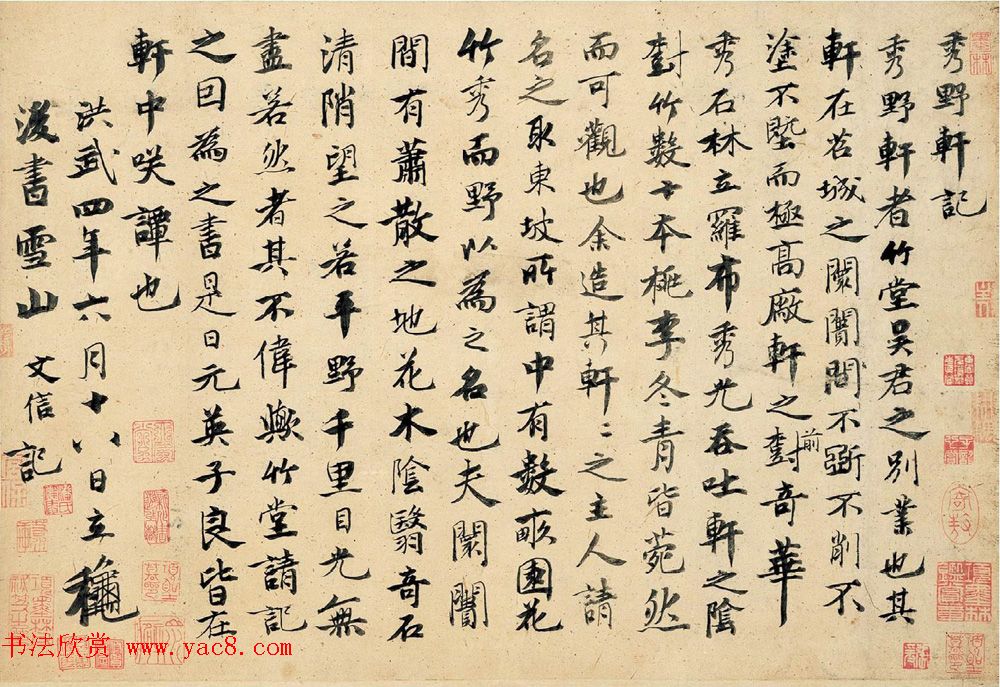 秀野軒記
秀野軒者竹堂吴君之别業也其
軒在苕城之闤闠間不斲不削不
塗不塈而極高厰軒之前對奇華
秀石林立羅布秀光吞吐軒之陰
對竹數十本桃李冬青皆菀然
而可觀也余造其軒軒之主人請
名之取東坡所謂中有數畝園花
竹秀而野以為之名也夫闤闠
間有蕭散之地花木陰翳奇石
清陗望之若平野千里目光無
盡若然者其不偉歟竹堂請記
之因為之書是日元英子良皆在
軒中咲譚也
洪武四年六月十八日立秋
後書雪山 文信記
书法欣赏 www.yac8.com